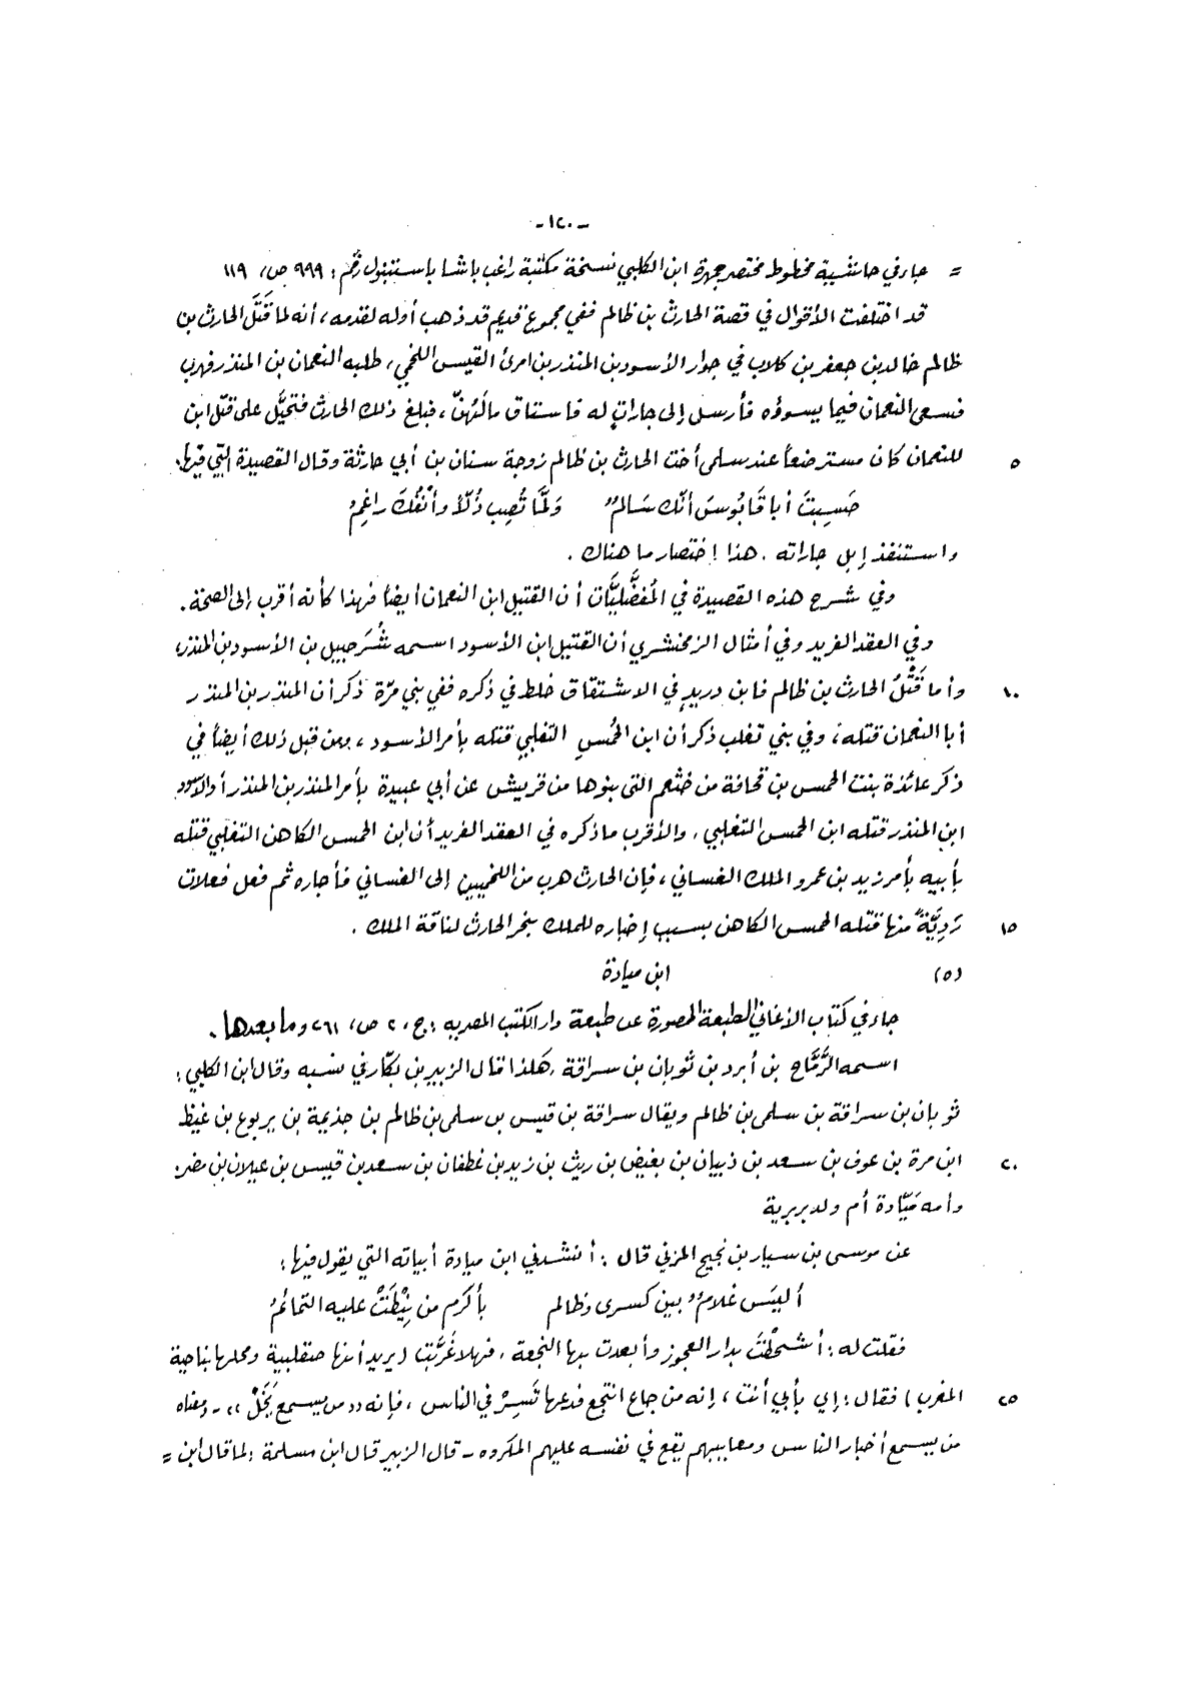 -١٢٠-
= جاء في حاشية مخطوط مختصر جمهرة ابن الكلبي نسخة مكتبة راغب باشا باستنبول رقم: ٩٩٩ ص، ١١٩
قد اختلفت الأقوال في قصة الحارث بن ظالم ففي مجموع قديم قد ذهب أوله لقدمه، أنه لما قَتَلَ الحارث بن
ظالم خالد بن جعفر بن كلاب في جوار الأسود بن المنذر بن امرئ القيس اللخمي، طلبه النعمان بن المنذر فهرب
فسعى النعمان فيما يسوؤه فأرسل إلى جاراتٍ له فاستاق مالَهُنّ، فبلغ ذلك الحارث فتحيَّل على قتل ابن
٥ للنعمان كان مسترضعاً عند سلمى أخت الحارث بن ظالم زوجة سنان بن أبي حارثة وقال القصيدة التي فيها:
حَسِبتَ أبا قَابُوسَ أنّك سَالمٌ وَلَمَّا تُصِب ذُلّاً وأنْفُكَ راغِمُ
واستنفذ إبل جاراته . هذا اختصار ما هناك .
وفي شرح هذه القصيدة في المُفضَّليَّات أن القتيل ابن النعمان أيضاً فهذا كأنه أقرب إلى الصحة .
وفي العقد الفريد وفي أمثال الزمخشري أن القتيل ابن الأسود اسمه شُرَحبيل بن الأسود بن المنذر،
١٠ وأما قَتْلُ الحارث بن ظالم فابن دريدٍ في الاشتقاق خلط في ذكره ففي بني مرّة ذكر أن المنذر بن المنذر
أبا النعمان قتله، وفي بني تغلب ذكر أن ابن الخُمسِ التغلبي قتله بأمر الأسود، ومن قبل ذلك أيضاً في
ذكر عائذة بنت الخمس بن قحافة من خثعم التي بنوها من قريش عن أبي عبيدة بأمر المنذر بن المنذر أو الأسود
ابن المنذر قتله ابن الخمس التغلبي، والأقرب ما ذكره في العقد الفريد أن ابن الخمس الكاهن التغلبي قتله
بأبيه بأمر زيد بن عمرو الملك الغساني، فإن الحارث هرب من اللخميين إلى الغساني فأجاره ثم فعل فعلات
١٥ رَدِيَّةً منها قتله الخمس الكاهن بسبب إخباره للملك بنحر الحارث لناقة الملك .
(٥) ابن ميادة
جاء في كتاب الأغاني الطبعة المصورة عن طبعة دار الكتب المصرية: ج، ٢ ص، ٢٦١ وما بعدها .
اسمه الرَّمَّاح بن أبرد بن ثوبان بن سراقة، هكذا قال الزبير بن بكّار في نسبه وقال ابن الكلبي:
ثوبان بن سراقة بن سلمى بن ظالم ويقال سراقة بن قيس بن سلمى بن ظالم بن جذيمة بن يربوع بن غيظ
٢٠ ابن مرة بن عوف بن سعد بن ذبيان بن بغيض بن ريث بن زيد بن غطفان بن سعد بن قيس بن عيلان بن مضر.
وأمه مَيّادة أم ولد بربرية
عن موسى بن سيار بن نجيح المزني قال: أنشدني ابن ميادة أبياته التي يقول فيها:
أليَس غلامٌ بين كسرى وظالم بأكرم من نِيْطَتْ عليه التمائمُ
فقلت له: أشحطْتَ بدار العجوز وأبعدت بها النجعة، فهلا غَرَّبت (يريد أنها صقلبية ومحلها بناحية
٢٥ المغرب) فقال: إي بأبي أنت، إنه من جاع انتجع فدعها تَسِرْ في الناس، فإنه «من يسمع يَخَلْ» - ومعناه
من يسمع أخبار الناس ومعايبهم يقع في نفسه عليهم المكروه - قال الزبير قال ابن مسلمة: لما قال ابن =